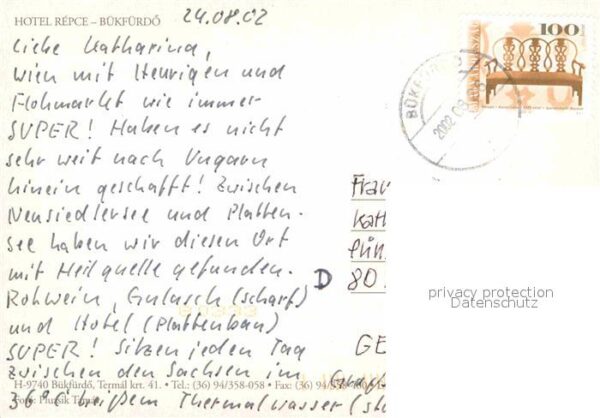 HOTEL RÉPCE – BÜKFÜRDŐ
24.08.02
Liebe Katharina,
Wien mit Heurigen und
Flohmarkt wie immer
SUPER! Haben es nicht
sehr weit nach Ungarn
hinein geschafft! Zwischen
Neusiedlersee und Platten-
see haben wir diesen Ort
mit Heilquelle gefunden.
Rotwein, Gulasch (scharf)
und Hotel (Plattenbau)
SUPER! Sitzen jeden Tag
zwischen den Sachsen im
36°C heißem Thermalwasser
100
BÜKFÜRDŐ
2002 08
Frau
Kath
D 80
GE
privacy protection
Datenschutz
H-9740 Bükfürdő, Termál krt. 41. • Tel.: (36) 94/358-058 • Fax: (36) 94/